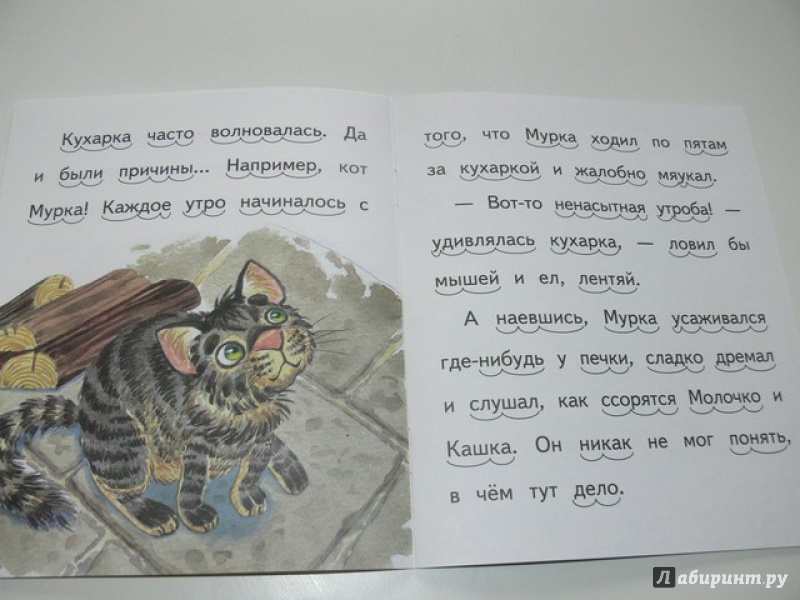 Кухарка часто волновалась. Да
и были причины... Например, кот
Мурка! Каждое утро начиналось с
того, что Мурка ходил по пятам
за кухаркой и жалобно мяукал.
— Вот-то ненасытная утроба! —
удивлялась кухарка, — ловил бы
мышей и ел, лентяй.
А наевшись, Мурка усаживался
где-нибудь у печки, сладко дремал
и слушал, как ссорятся Молочко и
Кашка. Он никак не мог понять,
в чём тут дело.
Лабиринт.ру